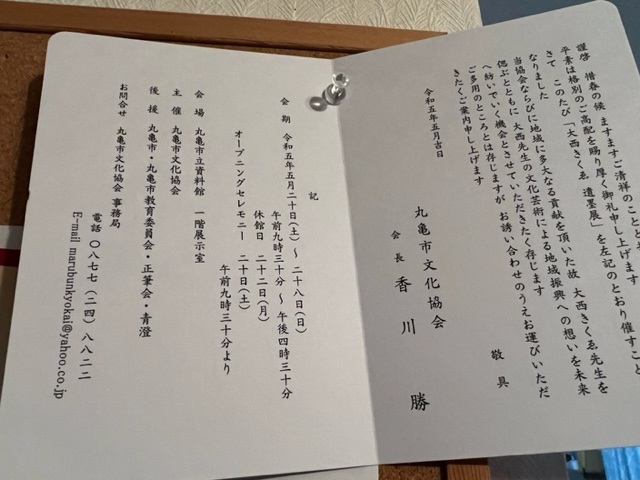 謹啓 惜春の候 ますますご清祥のこととお
平素は格別のご高配を賜り厚く御礼申し上げます
さて このたび「大西きくゑ 遺墨展」を左記のとおり催すこと
なりました
当協会ならびに地域に多大なる貢献を頂いた故 大西きくゑ先生を
偲ぶとともに 大西先生の文化芸術による地域振興への想いを未来
へ紡いでいく機会とさせていただきたく存じます
ご多用のところとは存じますが お誘い合わせのうえお運びいただ
きたくご案内申し上げます
敬具
令和五年五月吉日
丸亀市文化協会
会長 香川 勝
記
会期 令和五年五月二十日(土)~ 二十八日(日)
午前九時三十分 ~ 午後四時三十分
休館日 二十二日(月)
オープニングセレモニー 二十日(土)
午前九時三十分より
会場 丸亀市立資料館 一階展示室
主催 丸亀市文化協会
後援 丸亀市・丸亀市教育委員会・正筆会・青澄
お問合せ 丸亀市文化協会 事務局
電話 〇八七七(二四)八八二二
E-mail marubunkyokai@yahoo.co.jp